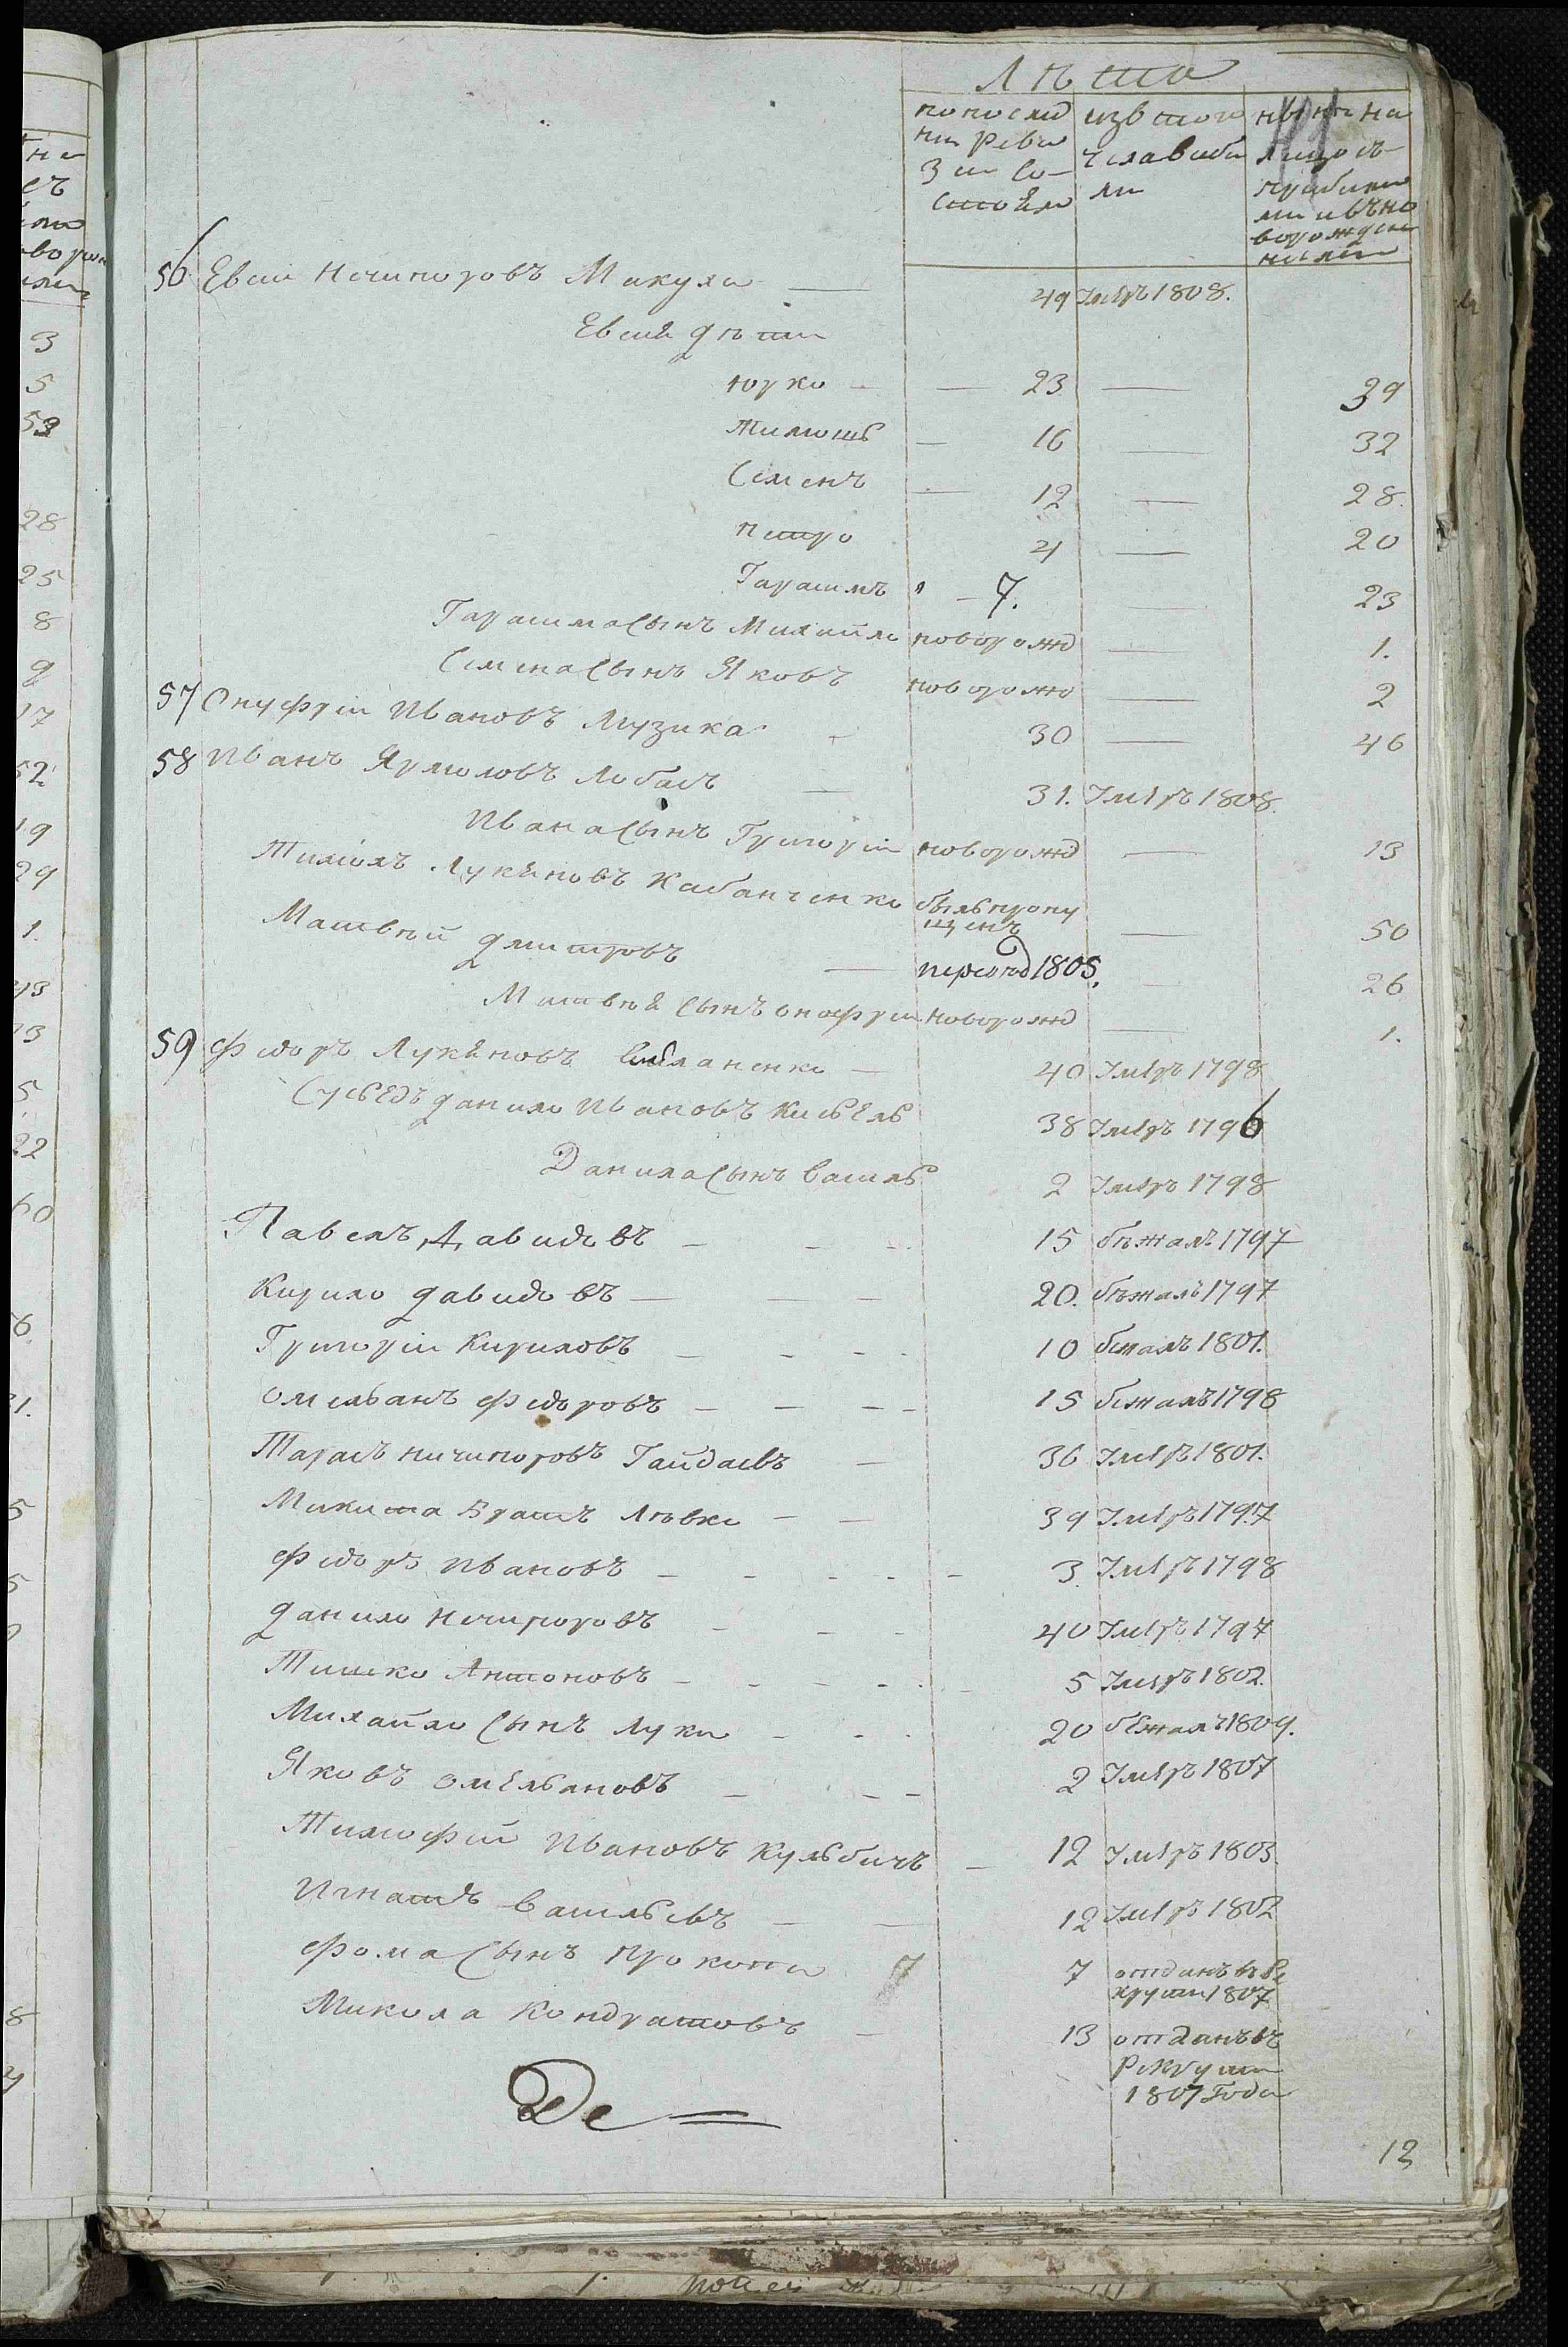 Лѣта
попослѣд ней Реви зии Со- стояло
изътого числа выбы ли
нынѣ на лицо съ прибылы ми ивъно ворожден ными
56 Евсий Ничипоровъ Микула — 49 Умеръ 1808.
Евсия дѣти
Юрко — 23 — 39
Тимошъ — 16 — 32
Семенъ — 12 — 28.
Петро 4 — 20
Гарасимъ — 7. 23
Гарасима Сынъ Михайло новорожд — 1.
Семена Сынъ Яковъ новорожд — 2
57 Онуфрій Ивановъ Музика — 30 — 46
58 Иванъ Ярмоловъ Лобасъ — 31. Умеръ 1808.
Ивана Сынъ Григорій новорожд — 13
Тимохъ Лукяновъ Кабанченко былъпропу щенъ — 50
Матвѣй Дмитровъ — 1805. — 26
Матвѣя Сынъ Онофрій новорожд — 1.
59 Федоръ Лукяновъ — 40 Умеръ 1798
Сусѣдъ Данило Ивановъ Кисѣль 38 Умеръ 1796
Данила Сынъ Василь 2 Умеръ 1798
Павелъ Давидовъ — 15 бѣжалъ 1797
Кирило Давидовъ — 20. бѣжалъ 1797
Григорій Кириловъ — 10 бежалъ 1801.
Омельянъ Федоровъ — 15 бежалъ 1798
Тарасъ Ничипоровъ Гайдаевъ — 36 Умеръ 1801.
Микита Братъ Лѣвко — 39 Умеръ 1797
Федоръ Ивановъ — 3. Умеръ 1798
Данило Ничипоровъ — 40 Умеръ 1797
Тишко Антоновъ — 5 Умеръ 1802.
Михайло Сынъ Луки — 20 бежалъ 1809.
Яковъ Омельяновъ — 2 Умеръ 1807
Тимофій Ивановъ Кульбичъ — 12 Умеръ 1803.
Игнатъ Васильевъ — 12 Умеръ 1802
Фома Сынъ Прокопи 7 отданъ въ Ре круты 1807
Микола Кондратовъ — 13 отданъ въ Рекруты 1807 Года
Де
12